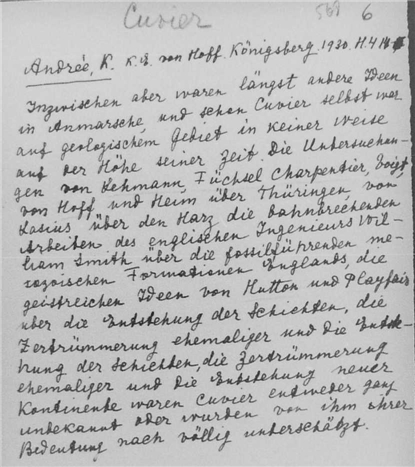 Cuvier
561 6
Andrée, K. K.E. von Hoff. Königsberg. 1930. H.4
Inzwischen aber waren längst andere Ideen
in Anmarsche, und schon Cuvier selbst war
auf geologischem Gebiet in keiner Weise
auf der Höhe seiner Zeit. Die Untersuchun-
gen von Lehmann, Füchsel Charpentier, Voigt,
von Hoff und Heim über Thüringen, von
Lasius über den Harz, die bahnbrechenden
Arbeiten des englischen Ingenieurs Wil-
liam Smith über die fossilführenden me-
sozoischen Formationen Englands, die
geistreichen Ideen von Hutton und Playfair
über die Entstehung der Schichten, die
Zertrümmerung ehemaliger und die Entste-
hung der Schichten, die Zertrümmerung
ehemaliger und die Entstehung neuer
Kontinente waren Cuvier entweder ganz
unbekannt oder wurden von ihm ihrer
Bedeutung nach völlig unterschätzt.